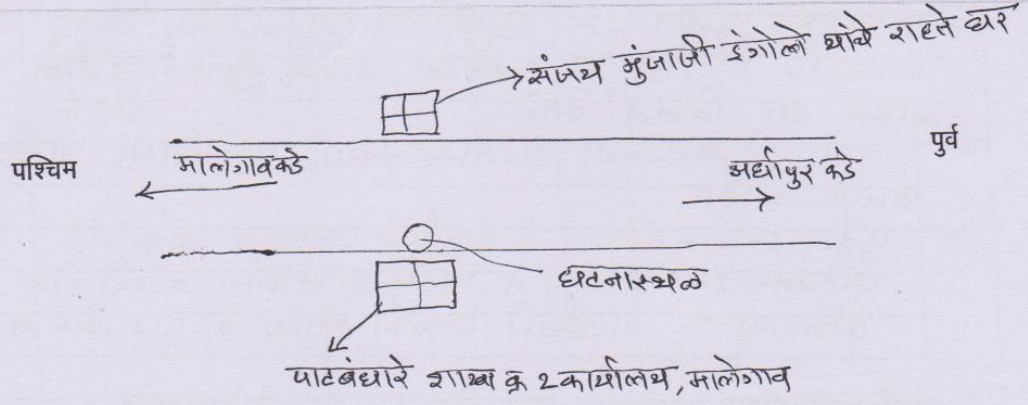 संजय मुंजाजी इंगोले यांचे राहते घर
पश्चिम
पुर्व
मालेगावकडे
अर्धापुर कडे
घटनास्थळ
पाटबंधारे शाखा क्र २ कार्यालय, मालेगाव